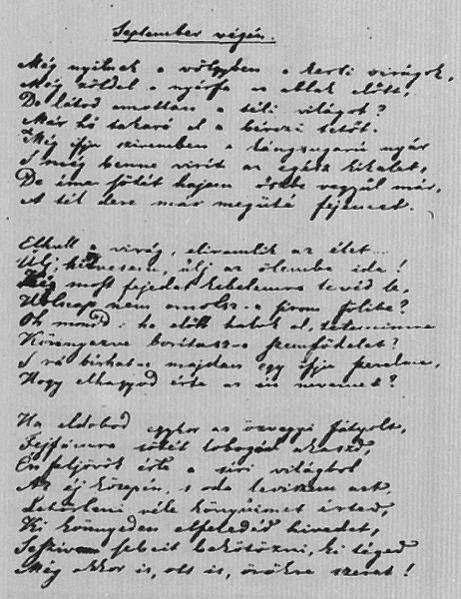 September végén.
Még nyilnak a völgyben a kerti virágok,
Még zöldel a nyárfa az ablak előtt,
De látod amottan a téli világot?
Már hó takará el a bérczi tetőt.
Még ifju szivemben a lángsugarú nyár
S még benne virít az egész kikelet,
De íme sötét hajam őszbe vegyűl már,
A tél dere már megüté fejemet.
Elhull a virág, eliramlik az élet...
Űlj, hitvesem, űlj az ölembe ide!
Ki most fejedet kebelemre tevéd le,
Holnap nem omolsz-e sirom fölibe?
Oh mondd: ha előbb halok el, tetemimre
Könnyezve borítasz-e szemfödelet?
S rá birhat-e majdan egy ifju szerelme,
Hogy elhagyod érte az én nevemet?
Ha eldobod egykor az özvegyi fátyolt,
Fejfámra sötét lobogóul akaszd,
Én feljövök érte a síri világból
Az éj közepén, s oda leviszem azt,
Letörleni véle könyűimet érted,
Ki könnyeden elfeledéd hivedet,
S e sziv sebeit bekötözni, ki téged
Még akkor is, ott is, örökre szeret!